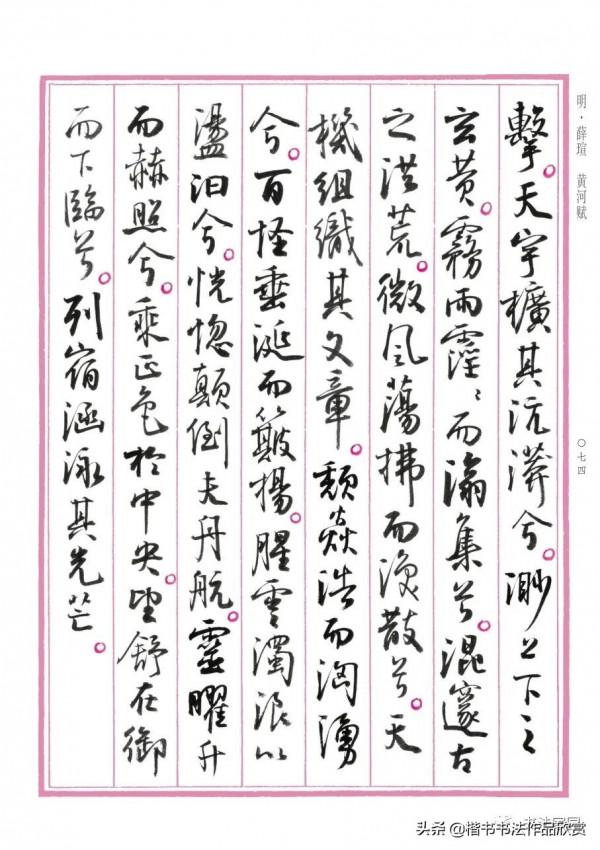 明·薛瑄 黄河赋
〇七四
擊。天宇擴其沆漭兮。渺上下之
玄黄。霧雨霪〻而滃集兮。混邃古
之洪荒。微風蕩拂而渙散兮。天
機組織其文章。頹焱浩而洶湧
兮。百怪垂涎而簸揚。腥雲濁浪以
盪汩兮。恍惚顛倒夫舟航。靈曜升
而赫照兮。乘正色於中央。望舒在御
而下臨兮。列宿涵泳其光芒。
头条 @楷书书法作品欣赏